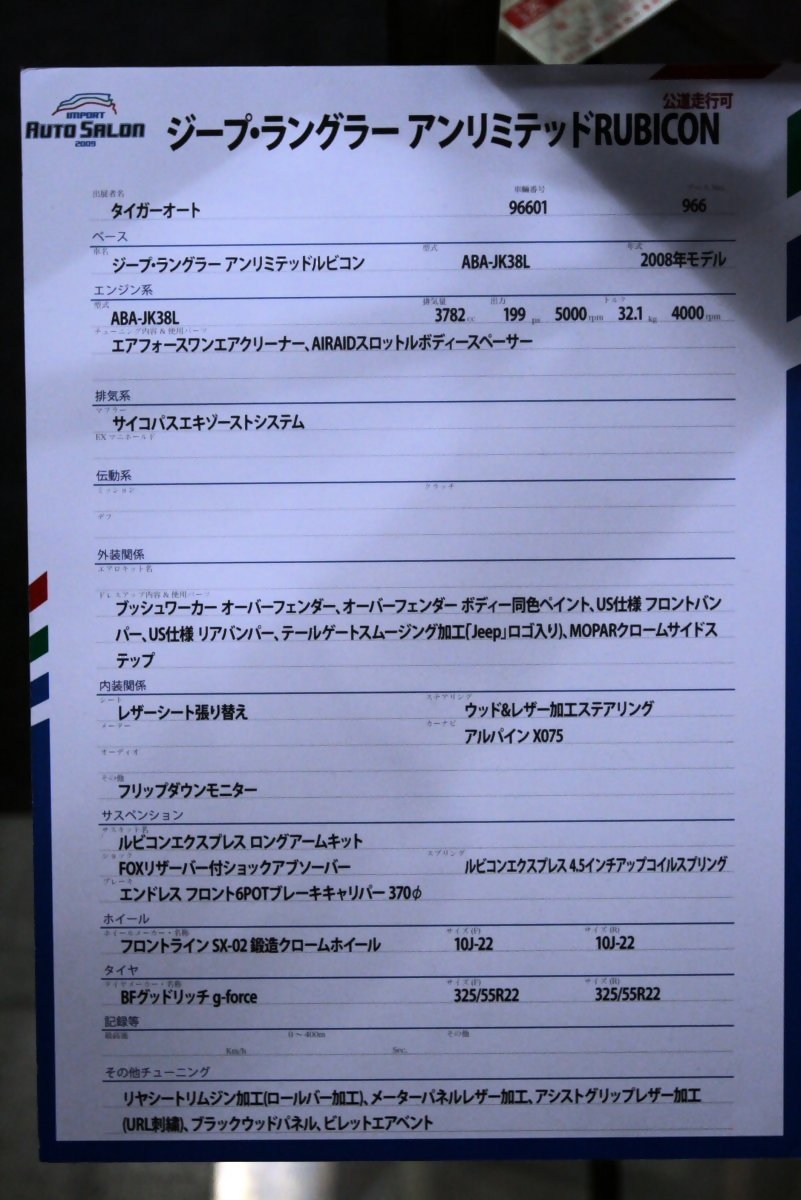 公道走行可
IMPORT
AUTO SALON
2009
ジープ・ラングラー アンリミテッドRUBICON
出展者名 車輛番号
タイガーオート 96601 966
ベース
車名 型式 年式
ジープ・ラングラー アンリミテッドルビコン ABA-JK38L 2008年モデル
エンジン系
型式 排気量 出力 トルク
ABA-JK38L 3782 cc 199 ps 5000 rpm 32.1 kg 4000 rpm
チューニング内容 & 使用パーツ
エアフォースワンエアクリーナー、AIRAIDスロットルボディースペーサー
排気系
マフラー
サイコパスエキゾーストシステム
EX マニホールド
伝動系
ミッション クラッチ
デフ
外装関係
エアロキット名
ドレスアップ内容 & 使用パーツ
ブッシュワーカー オーバーフェンダー、オーバーフェンダー ボディー同色ペイント、US仕様 フロントバン
パー、US仕様 リアバンパー、テールゲートスムージング加工(「Jeep」ロゴ入り)、MOPARクロームサイドス
テップ
内装関係
シート ステアリング
レザーシート張り替え ウッド&レザー加工ステアリング
メーター カーナビ
アルパイン X075
オーディオ
その他
フリップダウンモニター
サスペンション
サスキット名
ルビコンエクスプレス ロングアームキット
ショック スプリング
FOXリザーバー付ショックアブソーバー ルビコンエクスプレス 4.5インチアップコイルスプリング
ブレーキ
エンドレス フロント6POTブレーキキャリパー 370φ
ホイール
ホイールメーカー・名称 サイズ(F) サイズ(R)
フロントライン SX-02 鍛造クロームホイール 10J-22 10J-22
タイヤ
タイヤメーカー・名称 サイズ(F) サイズ(R)
BFグッドリッチ g-force 325/55R22 325/55R22
記録等
最高速 0～400m その他
Km/h Sec.
その他チューニング
リヤシートリムジン加工(ロールバー加工)、メーターパネルレザー加工、アシストグリップレザー加工
(URL刺繍)、ブラックウッドパネル、ビレットエアベント